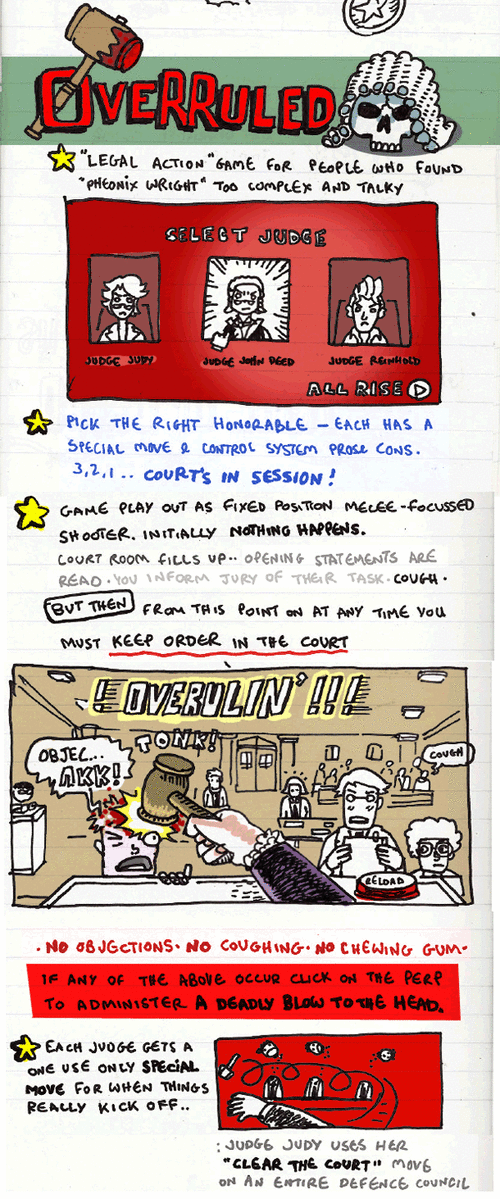 OVERRULED
"LEGAL ACTION" GAME FOR PEOPLE WHO FOUND
"PHEONIX WRIGHT" TOO COMPLEX AND TALKY
SELECT JUDGE
JUDGE JUDY
JUDGE JOHN DEED
JUDGE REINHOLD
ALL RISE
PICK THE RIGHT HONORABLE - EACH HAS A
SPECIAL MOVE & CONTROL SYSTEM PROSE CONS.
3,2,1.. COURT'S IN SESSION!
GAME PLAY OUT AS FIXED POSITION MELEE-FOCUSSED
SHOOTER. INITIALLY NOTHING HAPPENS.
COURT ROOM FILLS UP.. OPENING STATEMENTS ARE
READ. YOU INFORM JURY OF THEIR TASK. COUGH.
BUT THEN FROM THIS POINT ON AT ANY TIME YOU
MUST KEEP ORDER IN THE COURT
! OVERULIN' !!!
TONK!
OBJEC...
AKK!
COUGH
RELOAD
. NO OBJECTIONS. NO COUGHING. NO CHEWING GUM.
IF ANY OF THE ABOVE OCCUR CLICK ON THE PERP
TO ADMINISTER A DEADLY BLOW TO THE HEAD.
EACH JUDGE GETS A
ONE USE ONLY SPECIAL
MOVE FOR WHEN THINGS
REALLY KICK OFF..
: JUDGE JUDY USES HER
"CLEAR THE COURT" MOVE
ON AN ENTIRE DEFENCE COUNCIL